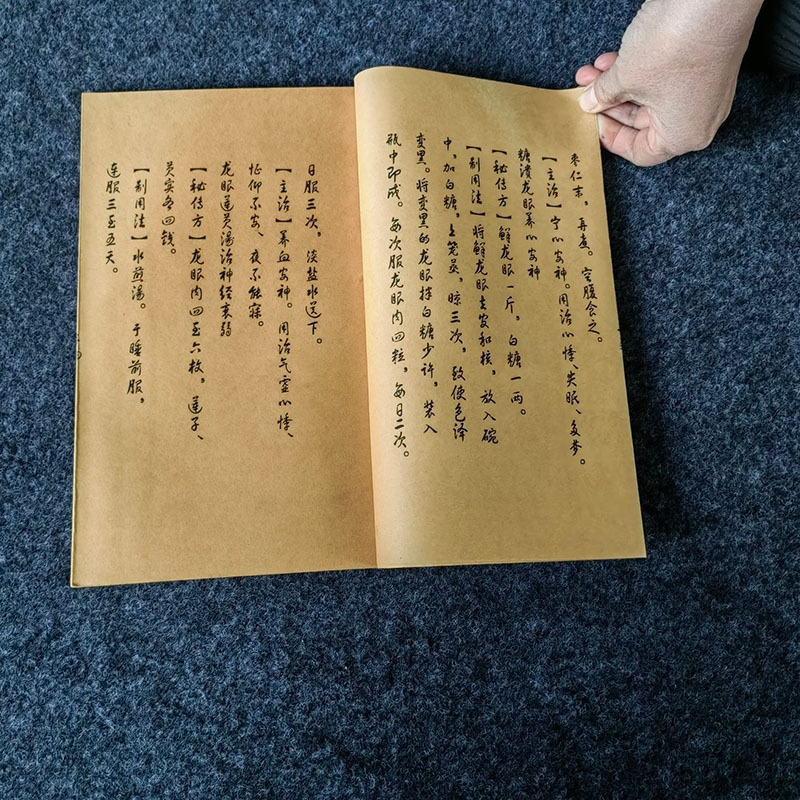 枣仁末，再煮。空腹食之。
【主治】宁心安神。用治心悸、失眠、多梦。
糖渍龙眼养心安神
【秘传方】鲜龙眼一斤，白糖一两。
【制用法】将鲜龙眼去皮和核，放入碗
中，加白糖，上笼蒸，晾三次，致使色泽
变黑。将变黑的龙眼拌白糖少许，装入
瓶中即成。每次服龙眼肉四粒，每日二次。
日服三次，淡盐水送下。
【主治】养血安神。用治气虚心悸、
怔仰不安、夜不能寐。
龙眼莲芡汤治神经衰弱
【秘传方】龙眼肉四至六枚，莲子、
芡实各四钱。
【制用法】水煎汤。于睡前服，
连服三至五天。